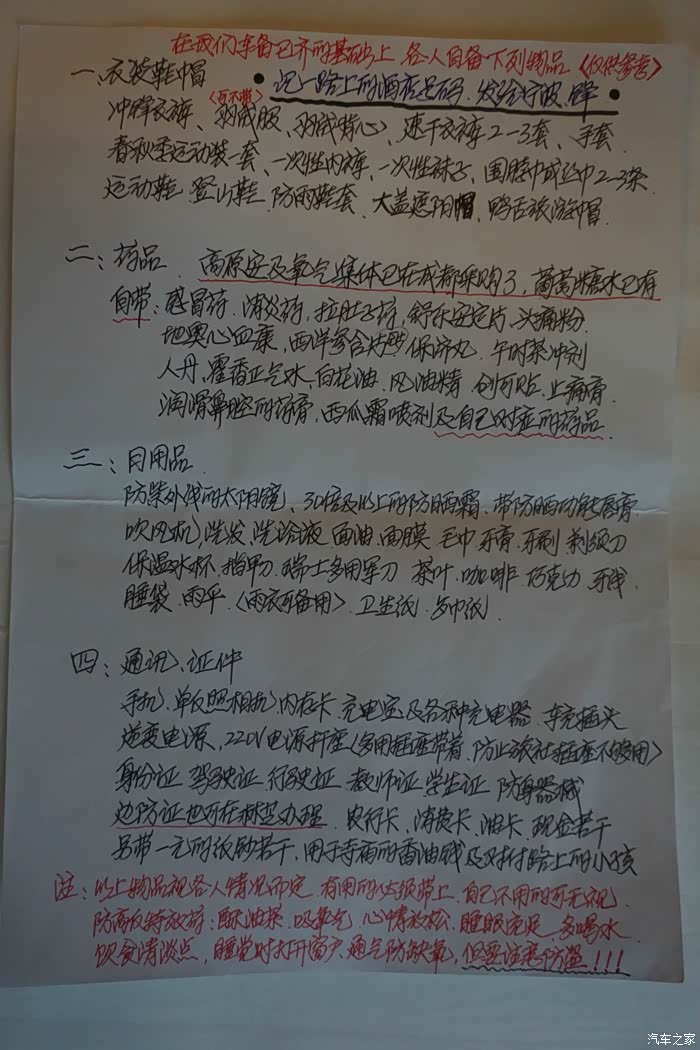 在我们车备已齐的基础上 各人自备下列物品 《仅供参考》
一、衣装鞋帽
• 记一路上的酒店号码. 发给 •
冲峰衣裤、(可不带)羽绒服、羽绒背心、速干衣裤2-3套、手套、
春秋季运动装一套、一次性内裤、一次性袜子、围脖巾或丝巾2-3条、
运动鞋 登山鞋 防雨鞋套、大盖遮阳帽、鸭舌旅游帽.
二：药品、高原安及氧气集体已在成都采购了，葡萄糖水已有
自带：感冒药、消炎药，拉肚子药，舒乐安定片、头痛粉、
地奥心血康，西洋参含片 保济丸、午时茶冲剂
人丹，霍香正气水，白花油、风油精 创可贴、止痛膏
润滑鼻腔的药膏，西瓜霜喷剂及自己对症的药品
三：日用品、
防紫外线的太阳镜、30倍及以上的防晒霜、带防晒功能唇膏
吹风机、洗发、洗浴液、面油、面膜、毛巾、牙膏、牙刷 剃须刀
保温水杯、指甲刀、瑞士多用军刀 茶叶、咖啡、巧克力、牙线、
睡袋、雨伞、〈雨衣可备用〉、卫生纸、多巾纸、
四：通讯、证件
手机、单反照相机、内存卡、充电宝及各种充电器、车充插头
逆变电源、220V电源插座〈多用插座带着，防止旅社插座不够用〉
身份证、驾驶证、行驶证、教师证、学生证 防身器械
边防证也可在林芝办理、农行卡、消费卡、油卡、现金若干
另带一元的纸钞若干，用于寺庙的香油钱及对付路上的小孩
注：以上物品视各人情况而定，有用的必须带上，自己不用的可无视，
防高反特效药：酥油茶、吸氧气、心情放松、睡眠充足，多喝水，
饮食清淡点，睡觉时打开窗户通气防缺氧，但要注意防盗！！！
汽车之家